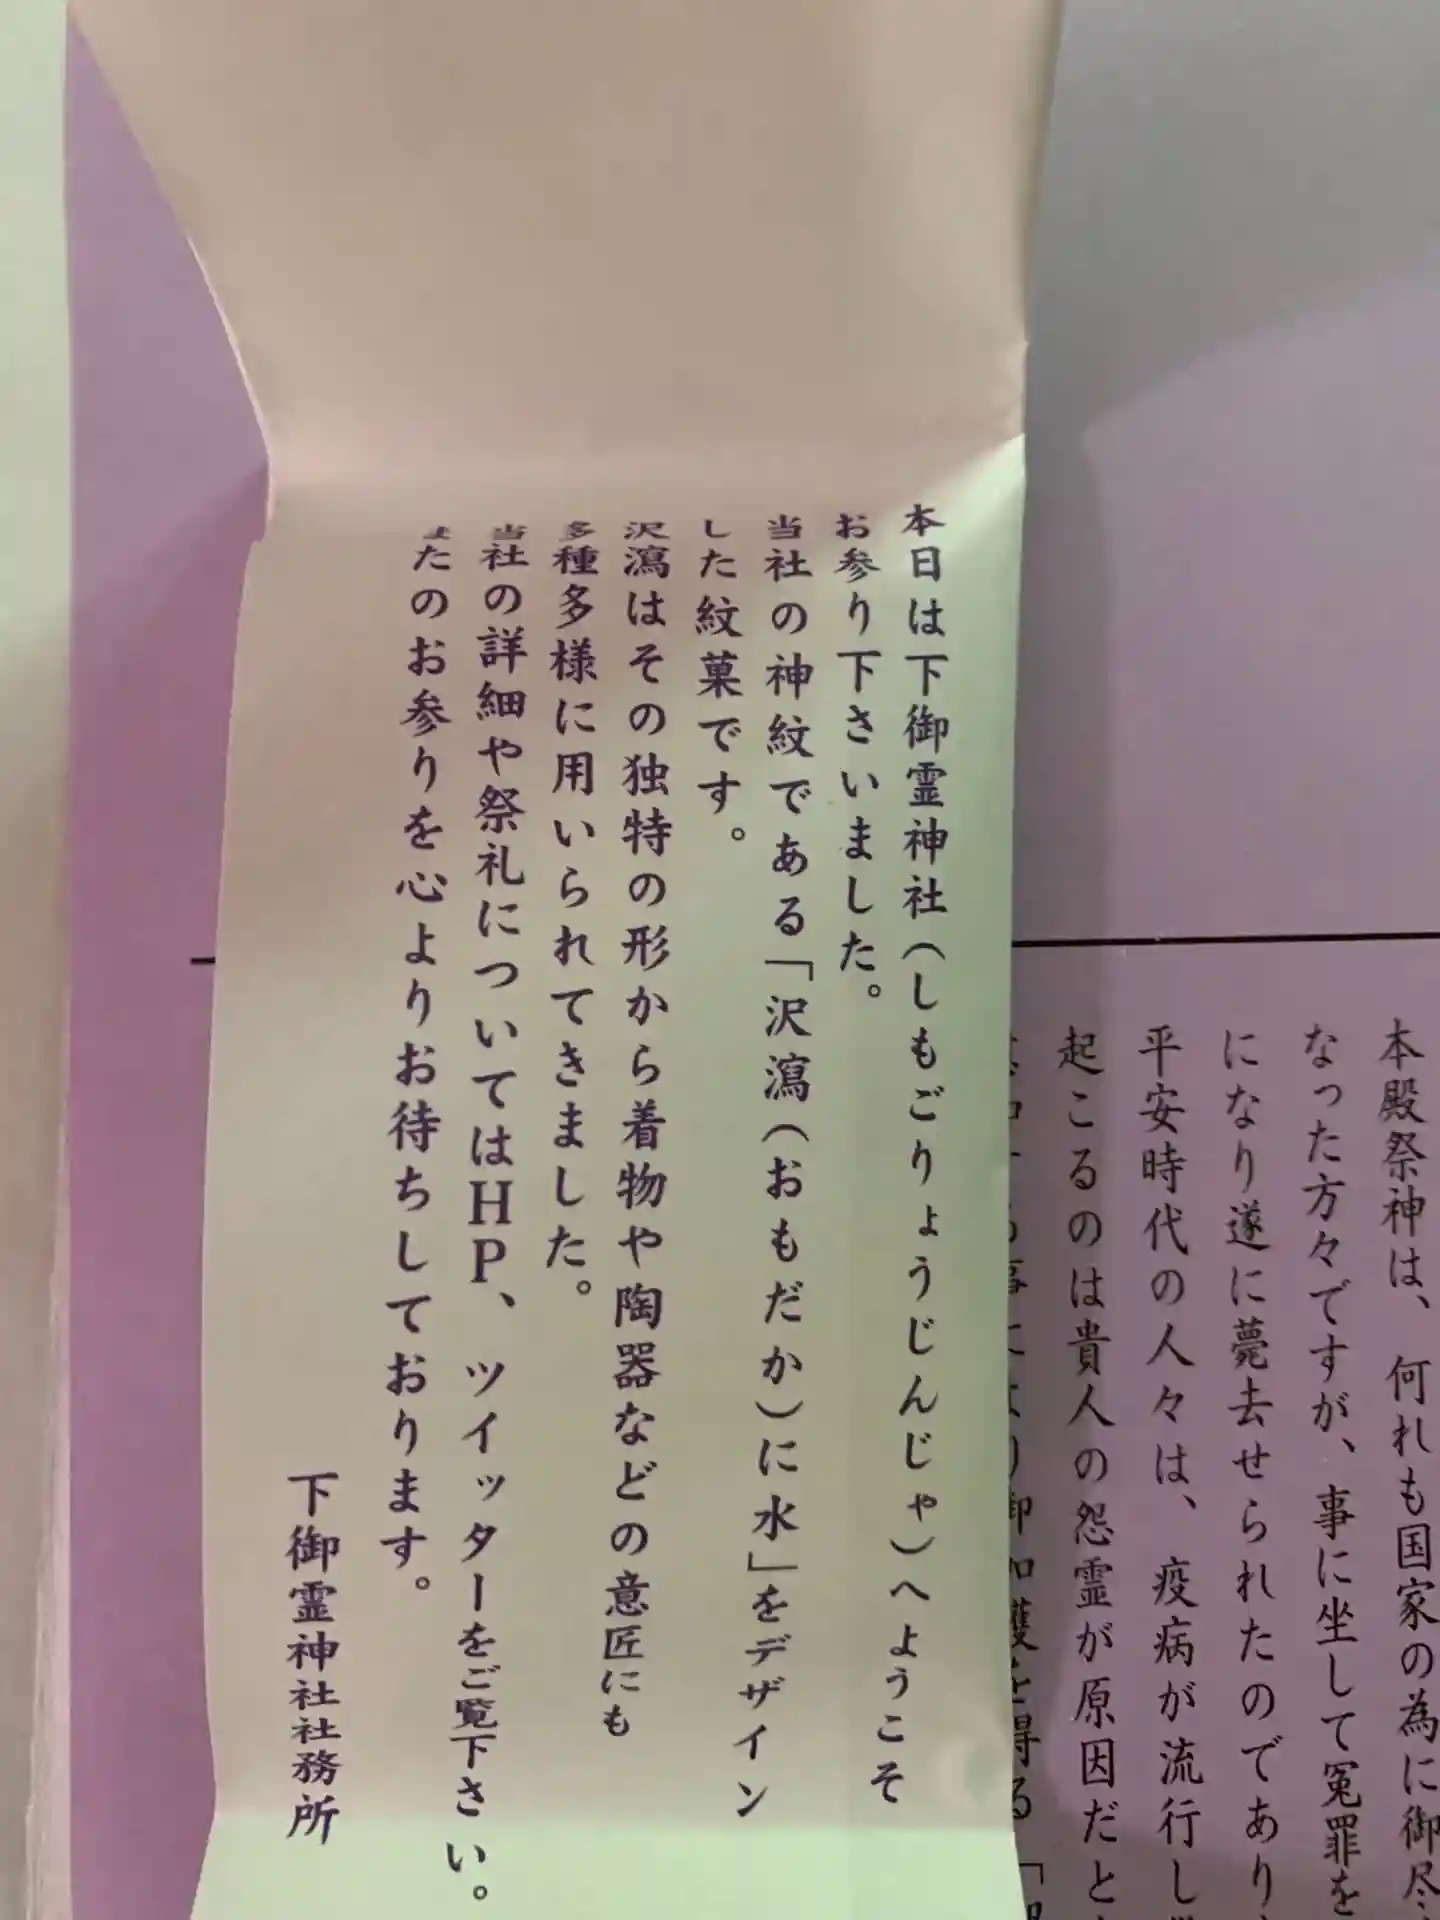 本殿祭神は、何れも国家の為に御尽
なった方々ですが、事に坐して冤罪を
になり遂に薨去せられたのであり
平安時代の人々は、疫病が流行し
起こるのは貴人の怨霊が原因だと
本日は下御霊神社(しもごりょうじんじゃ)へようこそ
お参り下さいました。
当社の神紋である「沢瀉(おもだか)に水」をデザイン
した紋菓です。
沢瀉はその独特の形から着物や陶器などの意匠にも
多種多様に用いられてきました。
当社の詳細や祭礼についてはHP、ツイッターをご覧下さい。
またのお参りを心よりお待ちしております。
下御霊神社社務所